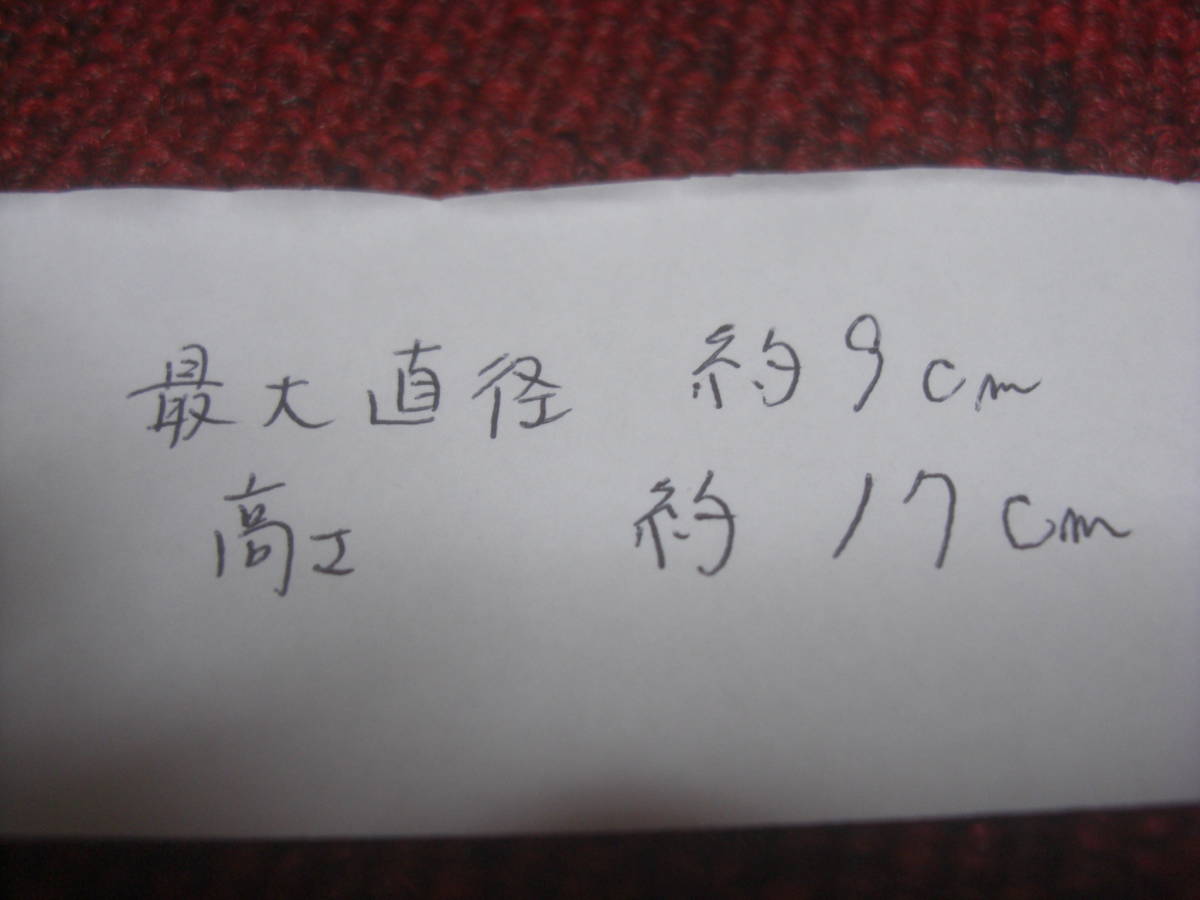 最大直径 約9cm
高さ 約17cm